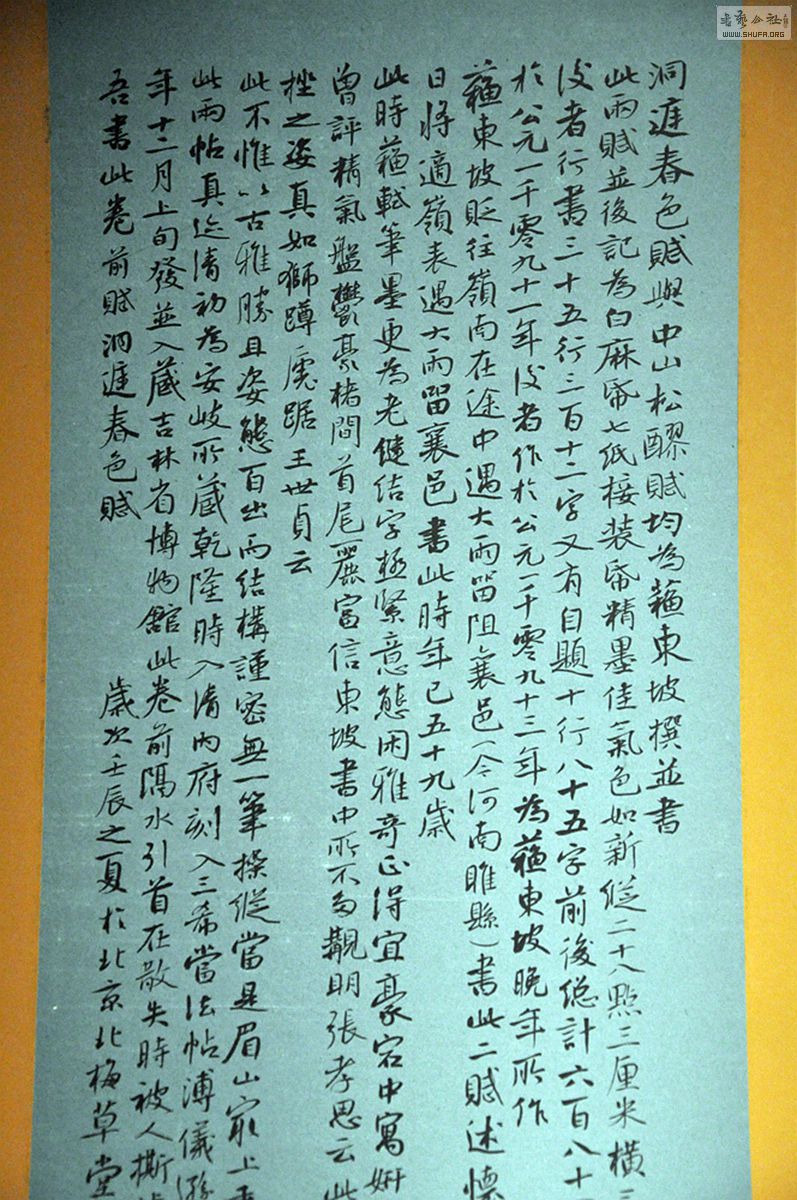 洞庭春色賦與中山松醪賦均為蘇東坡撰並書
此兩賦並後記為白麻帋七紙接裝帋精墨佳氣色如新縱二十八點三厘米橫
後者行書三十五行三百十二字又有自題十行八十五字前後總計六百八十
於公元一千零九十一年後者作於公元一千零九十三年為蘇東坡晚年所作
蘇東坡貶往嶺南在途中遇大雨留阻襄邑(今河南睢縣)書此二賦述懷
日將適嶺表遇大雨留襄邑書此時年已五十九歲
此時蘇軾筆墨更為老健結字極緊意態困雅奇正得宜豪宕中寓妍
曾評精氣盤鬱豪楮間首尾麗富信東坡書中所不多覯明張孝思云此
挫之姿真如獅蹲虎踞王世貞云
此不惟以古雅勝且姿態百出而結構謹密無一筆操縱當是眉山最上
此兩帖真迹清初為安岐所藏乾隆時入清內府刻入三希當法帖溥儀
年十二月上旬發並入藏吉林省博物館此卷前隔水引首在散失時被人撕
吾書此卷前賦洞庭春色賦
歲次壬辰之夏於北京北梅草堂
書藝公社
WWW.SHUFA.ORG